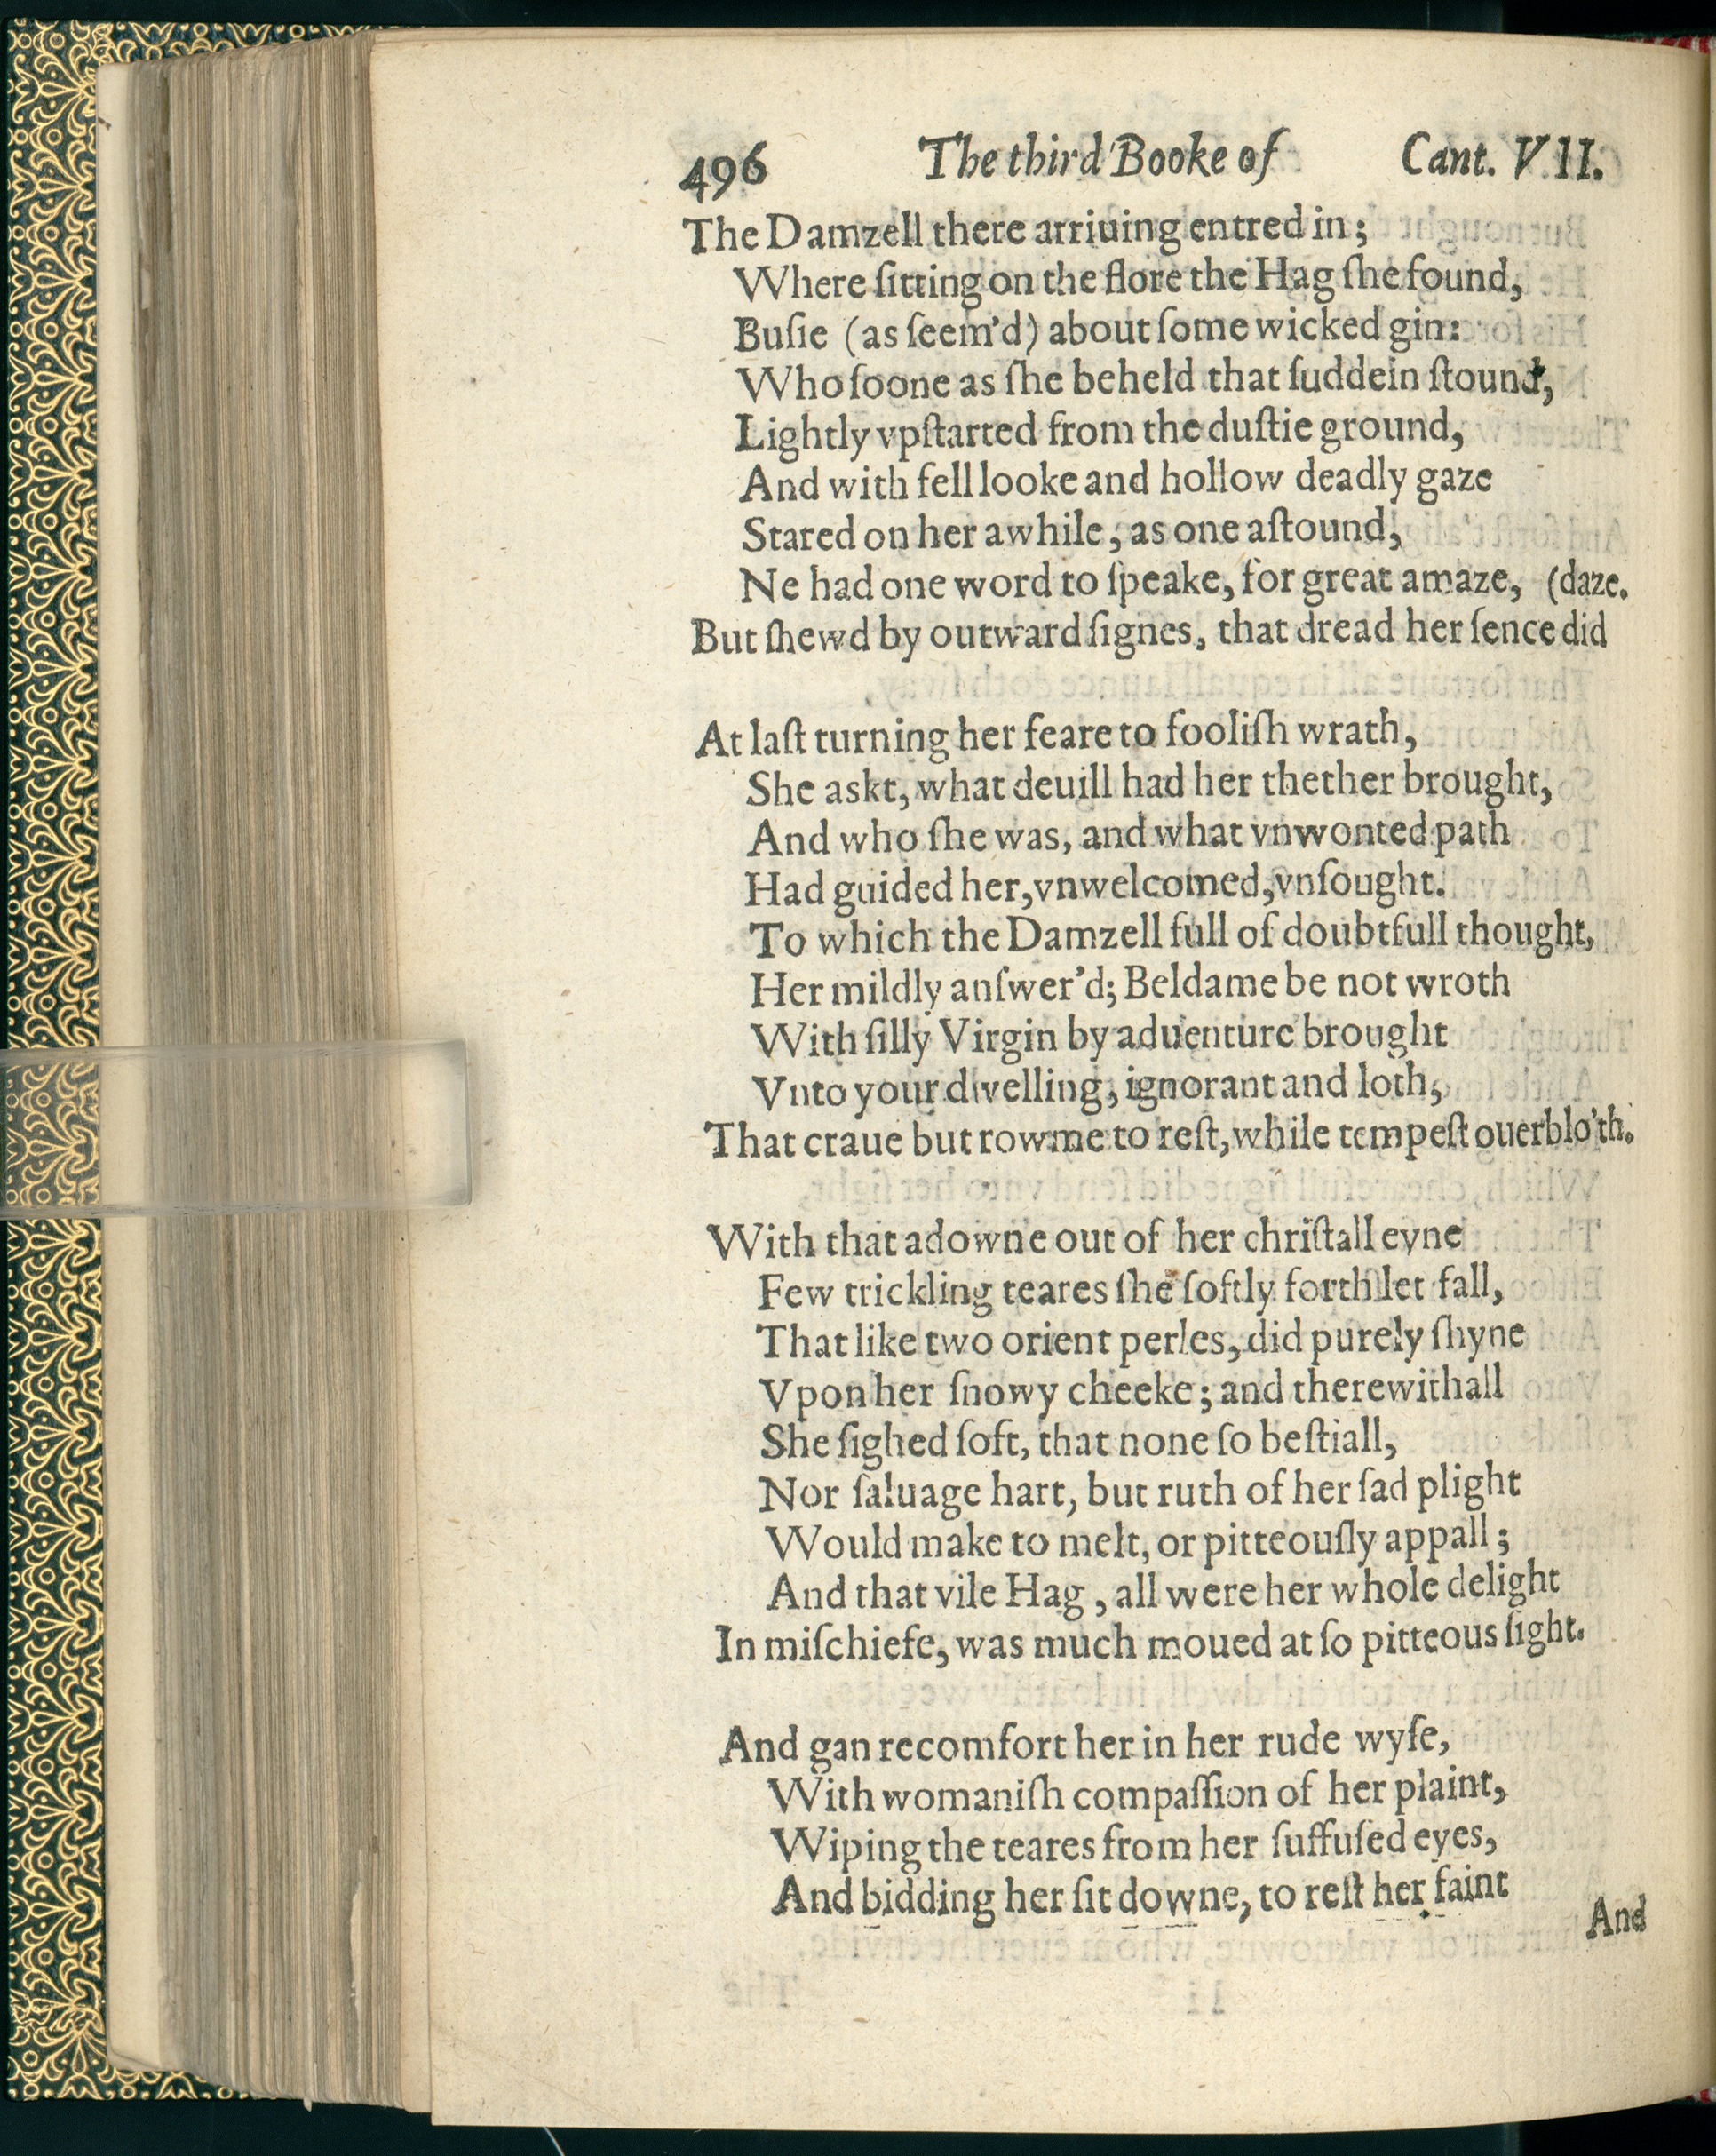 496 The third Booke of Cant. VII.
The Damzell there arriuing entred in;
Where ſitting on the flore the Hag ſhe found,
Buſie (as ſeem'd) about ſome wicked gin:
Who ſoone as ſhe beheld that ſuddein ſtound,
Lightly vpſtarted from the duſtie ground,
And with fell looke and hollow deadly gaze
Stared on her awhile, as one aſtound,
Ne had one word to ſpeake, for great amaze, (daze.
But ſhewd by outward ſignes, that dread her ſence did
At laſt turning her feare to fooliſh wrath,
She askt, what deuill had her thether brought,
And who ſhe was, and what vnwonted path
Had guided her, vnwelcomed, vnſought.
To which the Damzell full of doubtfull thought,
Her mildly anſwer'd; Beldame be not wroth
With ſilly Virgin by aduenture brought
Vnto your dwelling, ignorant and loth,
That craue but rowme to reſt, while tempeſt ouerblo'th.
With that adowne out of her chriſtall eyne
Few trickling teares ſhe ſoftly forth let fall,
That like two orient perles, did purely ſhyne
Vpon her ſnowy cheeke; and therewithall
She ſighed ſoft, that none ſo beſtiall,
Nor ſaluage hart, but ruth of her ſad plight
Would make to melt, or pitteouſly appall;
And that vile Hag, all were her whole delight
In miſchiefe, was much moued at ſo pitteous ſight.
And gan recomfort her in her rude wyſe,
With womaniſh compaſſion of her plaint,
Wiping the teares from her ſuffuſed eyes,
And bidding her ſit downe, to reſt her faint
And